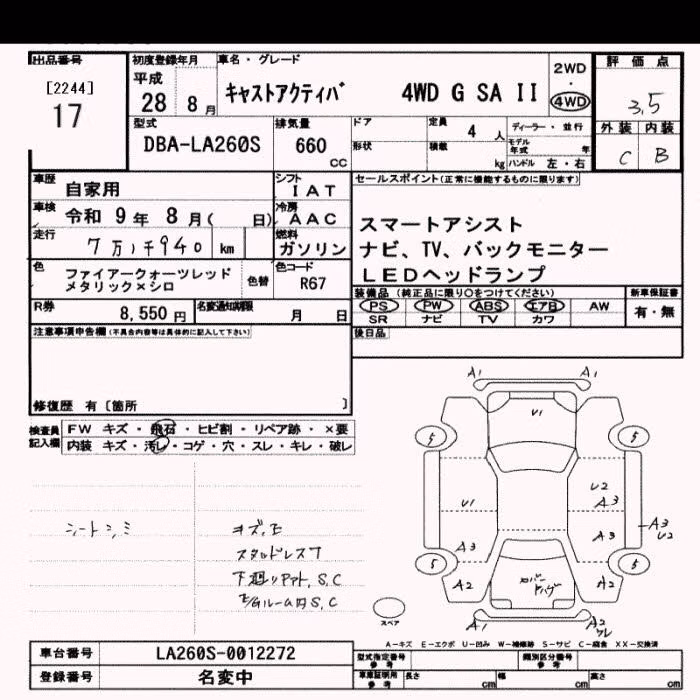 出品番号
[2244]
17
初度登録年月
平成
28 8月
車名・グレード
キャストアクティバ 4WD G SA II
2WD
・
4WD
評価点
3.5
外装 内装
C B
型式
DBA-LA260S
排気量
660
cc
ドア
形状
定員
4 人
積載
kg
ディーラー・並行
モデル
年式 年
ハンドル 左・右
車歴
自家用
シフト
IAT
車検
令和 9年 8月( 日)
冷房
AAC
走行
7万1千940 km
燃料
ガソリン
色
ファイアークォーツレッド
メタリック×シロ
色替
色コード
R67
R券
8,550 円
名変通知期限
月 日
セールスポイント(正常に機能するものに限ります)
スマートアシスト
ナビ、TV、バックモニター
LEDヘッドランプ
装備品 (純正品に限り○をつけてください)
PS PW ABS エアB AW
SR ナビ TV カワ
新車保証書
有・無
後日品
注意事項申告欄(不具合内容等は具体的に記入して下さい)
修復歴 有〔箇所 〕
検査員
記入欄
FW キズ・飛石・ヒビ割・リペア跡・×要
内装 キズ・汚レ・コゲ・穴・スレ・キレ・破レ
シートシミ
キズ、E
スタッドレス7
下廻りサビ、S、C
E/Gルーム内S、C
A1 A1
U1
5 5
U1
U2
A3
A3
A3
A3
U2
5 5
A2 A2
カバー
A1 A2
ワレ
スペア
A-キズ E-エクボ U-凹み W-補修跡 S-サビ C-腐食 XX-交換済
車台番号 LA260S-0012272
登録番号 名変中
型式指定番号
参考
類別区分番号
参考
車庫証明用
参考
長さ cm
幅 cm
高さ cm